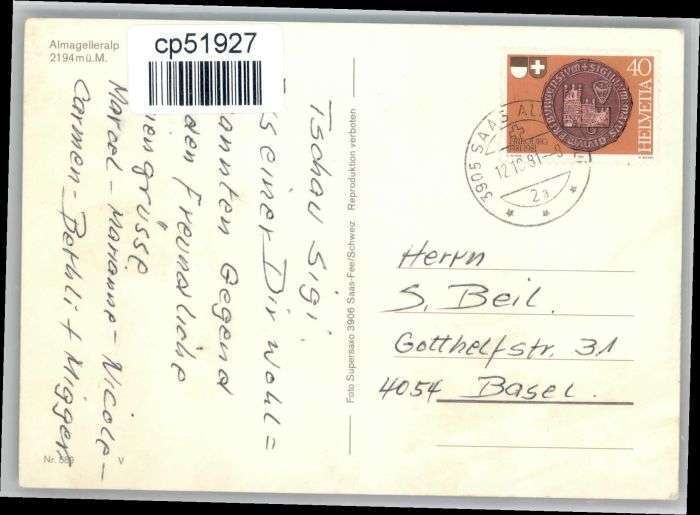 Almagelleralp
2194 m ü. M.
cp51927
Tschau Sigi.
seiner Dir wohl=
annten Gegend
den Freundliche
iengrüsse
Marcel - Marianne - Nicole -
Carmen - Bethli +
Nr. 589 V
Foto Supersaxo 3906 Saas-Fee/Schweiz Reproduktion verboten
40
HELVETIA
3905 SAAS AL
12.10.81
2a
Herrn
S. Beil.
Gotthelfstr. 31
4054 Basel.